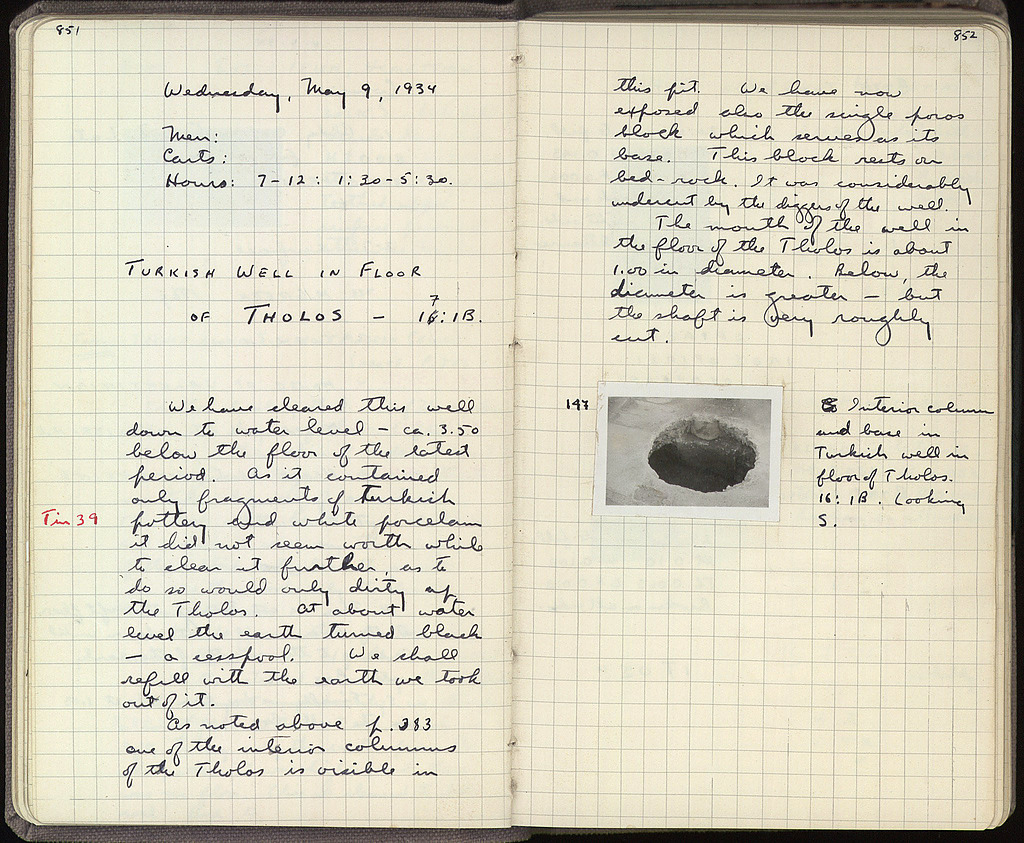 851
Wednesday, May 9, 1934
Men:
Carts:
Hours: 7-12: 1:30-5:30.
TURKISH WELL IN FLOOR
OF THOLOS — 167:1B.
We have cleared this well
down to water level — ca. 3.50
below the floor of the latest
period. As it contained
only fragments of Turkish
Tin 39 pottery and white porcelain
it did not seem worth while
to clear it further, as to
do so would only dirty up
the Tholos. At about water
level the earth turned black
— a cesspool. We shall
refill with the earth we took
out of it.
As noted above p. 383
one of the interior columns
of the Tholos is visible in
852
this pit. We have now
exposed also the single poros
block which serves as its
base. This block rests on
bed-rock. It was considerably
undercut by the diggers of the well.
The mouth of the well in
the floor of the Tholos is about
1.00 in diameter. Below, the
diameter is greater — but
the shaft is very roughly
cut.
147
Interior column
and base in
Turkish well in
floor of Tholos.
16:1B. Looking
S.